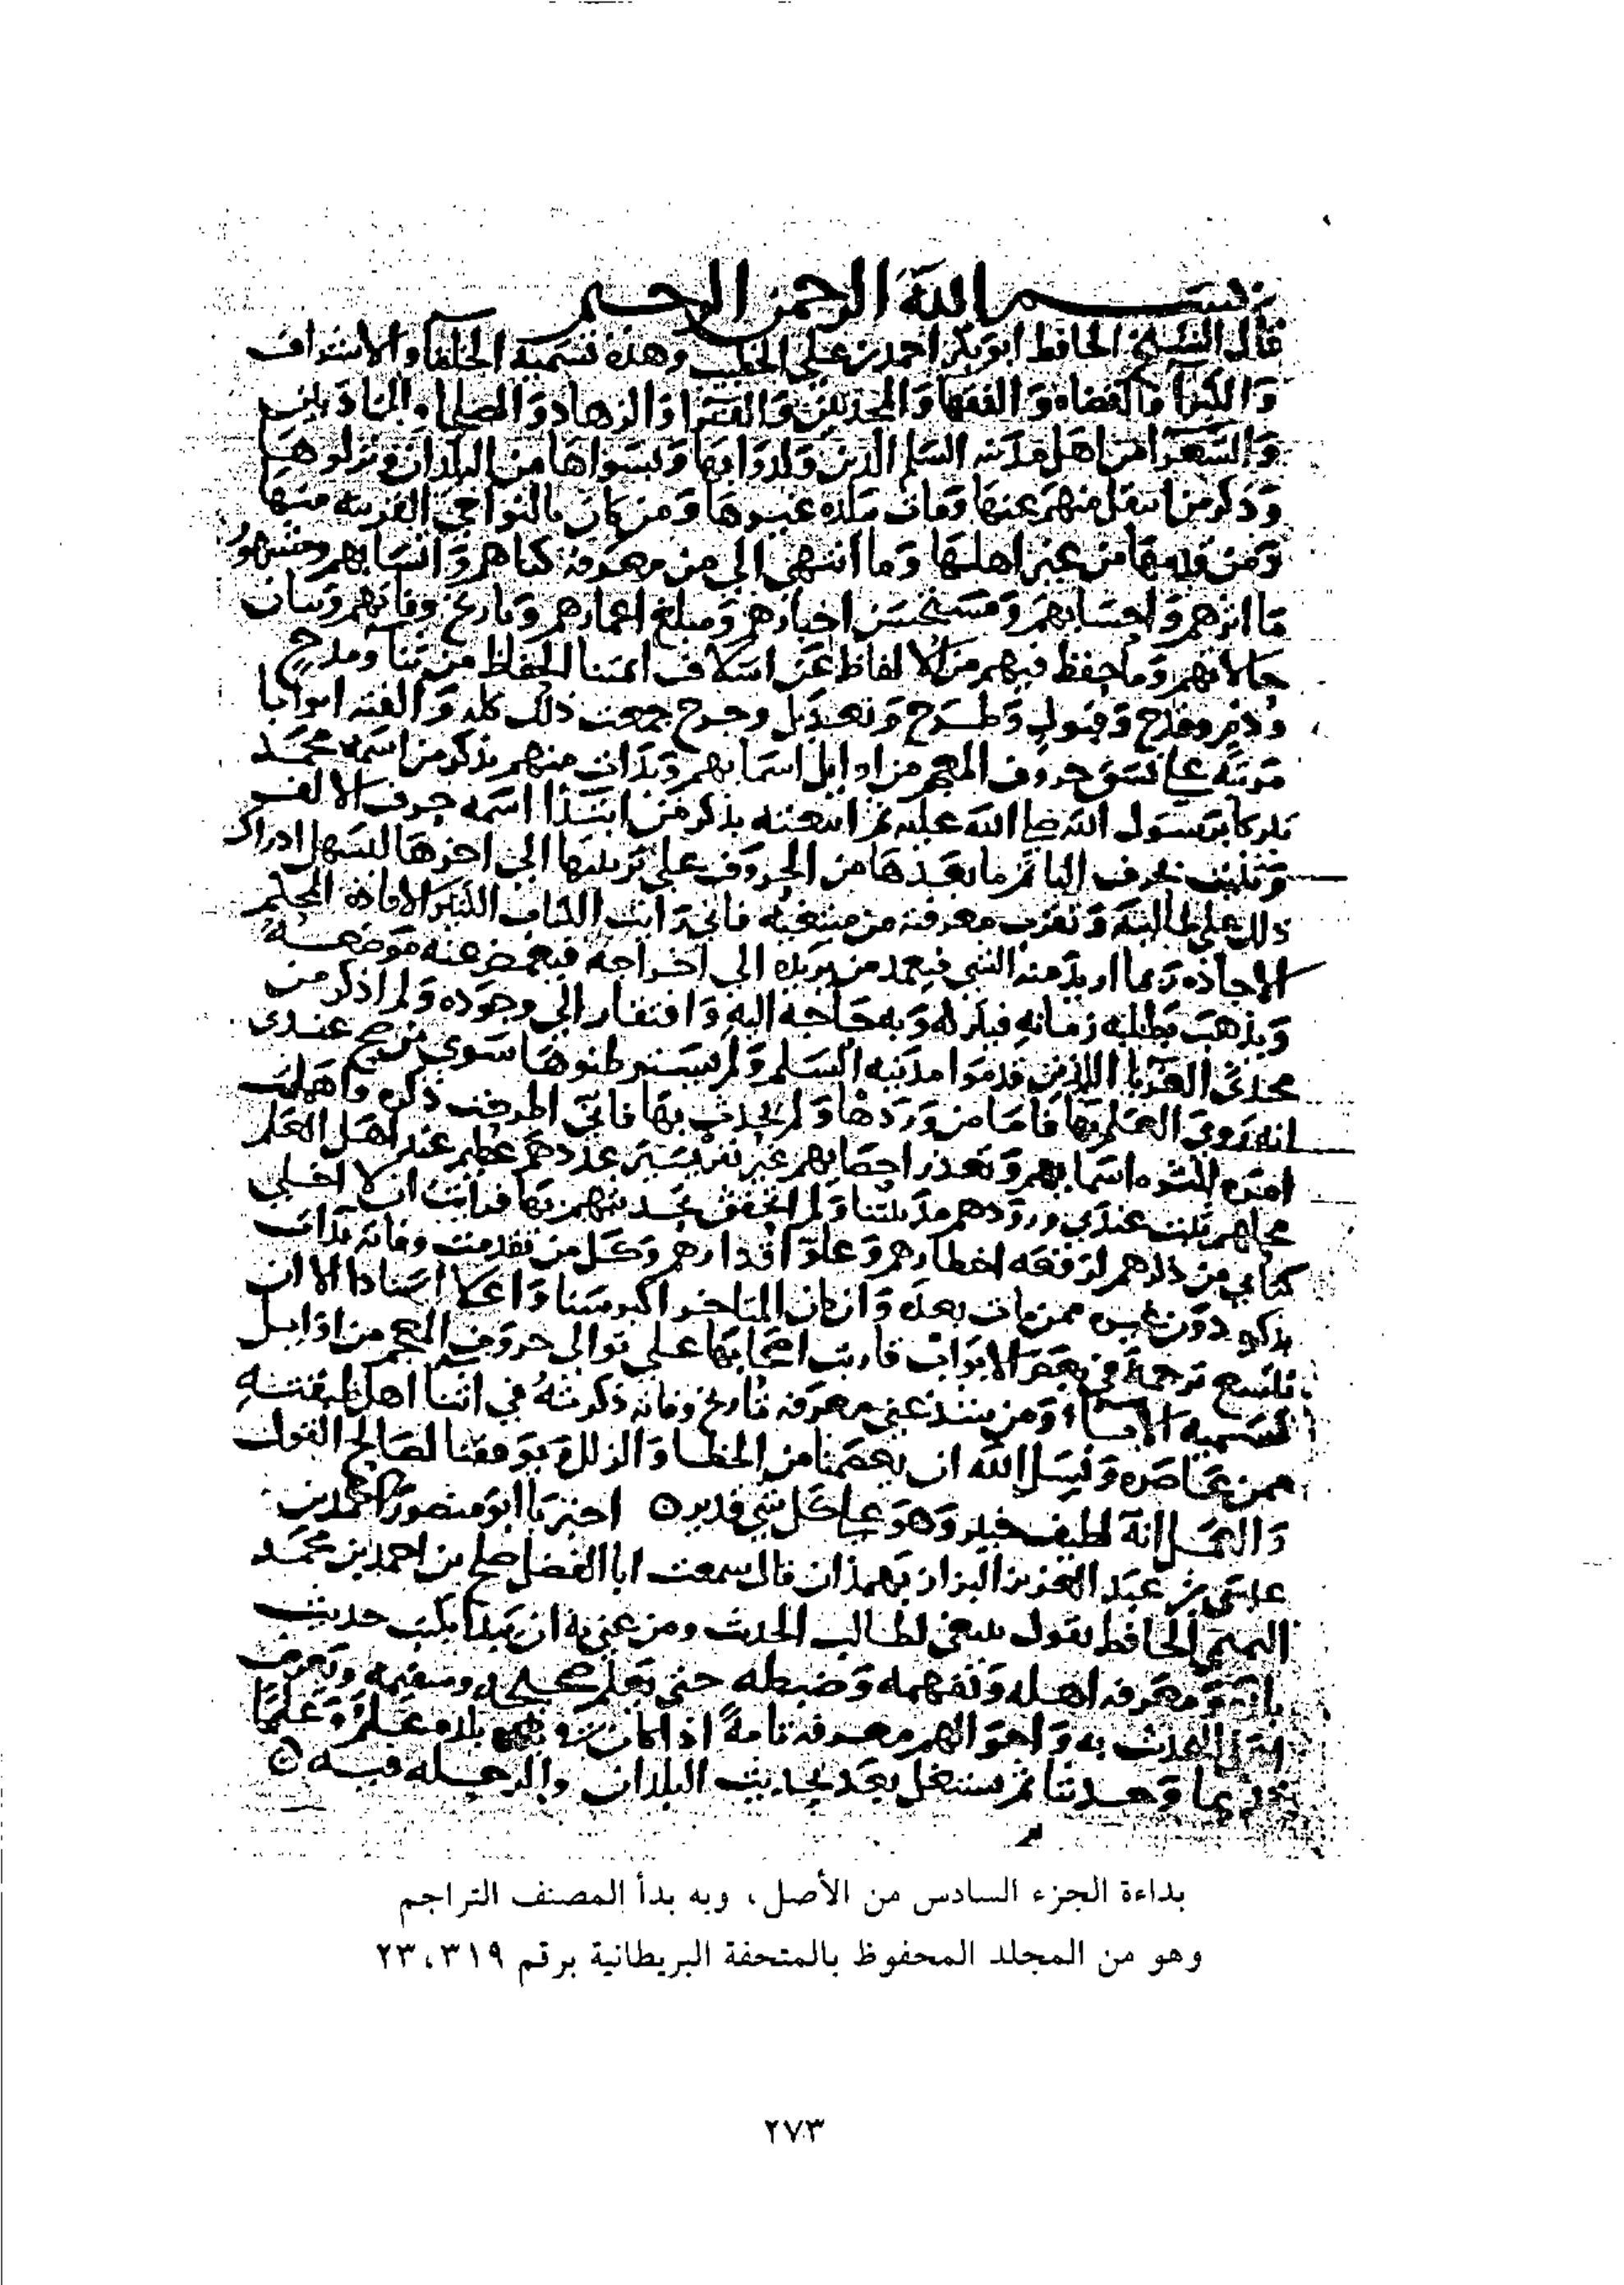 بسم الله الرحمن الرحيم
قال الشيخ الحافظ ابو بكر احمد بن علي الخطيب وهذه تسمية الخلفا والاشراف
والكبرا والقضاه والفقها والمحدثين والقرا والزهاد والصلحا والمتادبين
والشعرا من اهل مدينه السلم الذين ولدوا بها وبسواها من البلدان ونزلوها
وذكر من انتقل منهم عنها ومات ببلده غيرها ومن كان بالنواحي القريبه منها
ومن قدمها من غير اهلها وما انتهى الي من معرفة كناهم وانسابهم ومشهور
ماثرهم واحسابهم ومستحسن اخبارهم ومبلغ اعمارهم وتاريخ وفاتهم وبيان
حالاتهم وما حفظ فيهم من الالفاظ عن اسلاف ائمتنا الحفاظ من ثنا ومدح
وذم وقدح وقبول وطرح وتعديل وجرح جمعت ذلك كله والفته ابوابا
مرتبه على نسق حروف المعجم من اوايل اسمايهم وبدات منهم بذكر من اسمه محمد
تبركا برسول الله صلى الله عليه ثم اتبعته بذكر من ابتدا اسمه حرف الالف
وثنيت بحرف البا ثم ما بعدها من الحروف على ترتيبها الى اخرها ليسهل ادراك
ذلك على طالبه وتقرب معرفته من مبتغيه فاني رايت الكتاب الكثير الافاده المحكم
الاجاده ربما اريد منه الشي فيعمد من يريده الى اخراجه فيغمض عنه موضعه
ويذهب بطلبه زمانه فيتركه وبه حاجه اليه وافتقار الى وجوده ولم اذكر من
محدثي الغربا الذين قدموا مدينه السلم ولم يستوطنوها سوى من صح عندي
انه روى العلم بها فاما من وردها ولم يحدث بها فاني اطرحت ذكره واهملت
امره لكثره اسمايهم وتعذر احصايهم غير نفر يسير عددهم عظيم عند اهل العلم
محلهم ثبت عندي ورودهم مدينتنا ولم اتحقق تحديثهم بها فرايت ان لا اخلي
كتابي من ذكرهم لرفعه اخطارهم وعلو اقدارهم وكل من تقدمت وفاته بدات
بذكره دون غيره ممن مات بعده وان كان المتاخر اكبر سنا واعلا اسنادا الا ان
تتسع ترجمة في بعض الابواب فارتب اصحابها على توالي حروف المعجم من اوايل
تسمية الابا ومن شذ عني معرفه تاريخ وفاته ذكرته في اثنا اهل طبقته
ممن عاصره ونسل الله ان يعصمنا من الخطا والزلل ويوفقنا لصالح القول
والعمل انه لطيف خبير وهو على كل شي قدير ٥ اخبرنا ابو منصور محمد بن
عيسى بن عبد العزيز البزاز بهمذان قال سمعت ابا الفضل صلح بن احمد بن محمد
التميمي الحافظ يقول ينبغي لطالب الحديث ومن عني به ان يبدا بكتب حديث
بلده ومعرفه اهله وتفهمه وضبطه حتى يعلم صحيحه وسقيمه ويعرف
اهل التحديث به واحوالهم معرفه تامة اذا كان في بلده علم وعلما
قديما وحديثا ثم يشتغل بعد بحديث البلدان والرحله فيه ٥
بداءة الجزء السادس من الأصل، وبه بدأ المصنف التراجم
وهو من المجلد المحفوظ بالمتحفة البريطانية برقم ٢٣،٣١٩
٢٧٣